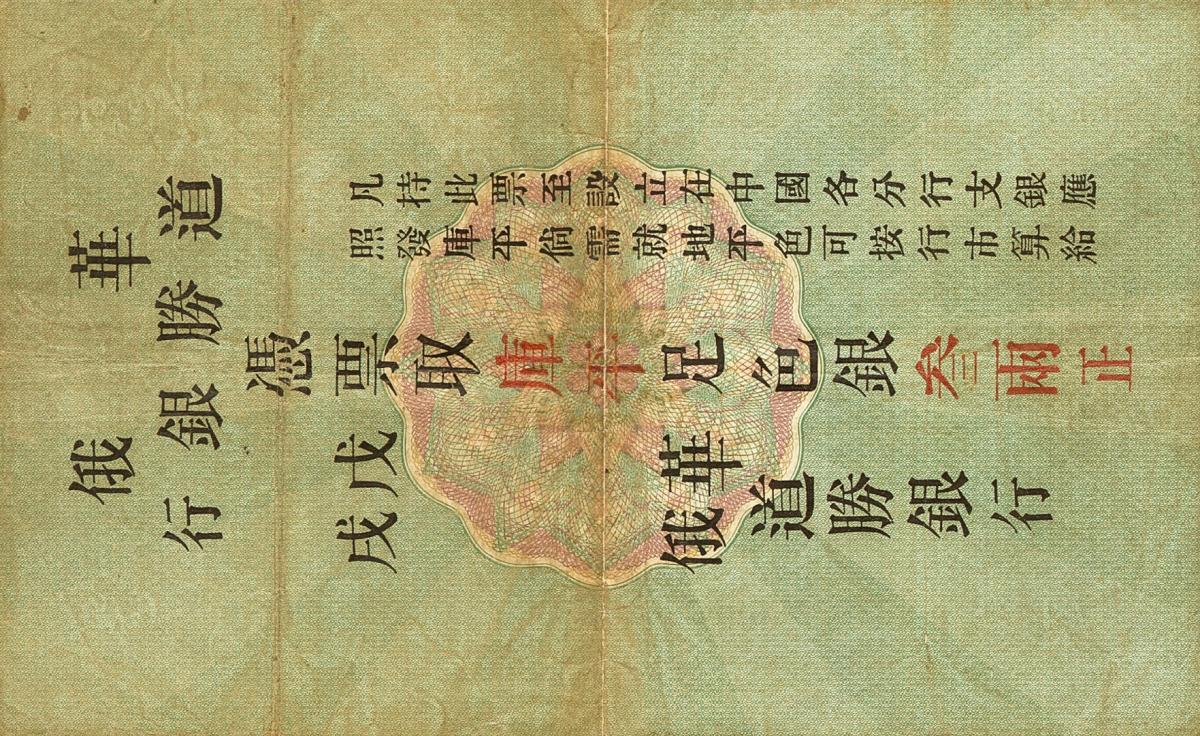 華俄
道勝銀行
凡持此票至設立在中國各分行支銀應
照發庫平倘需就地平色可按行市算給
憑票取庫平足色銀叁兩正
戊戌
華俄道勝銀行